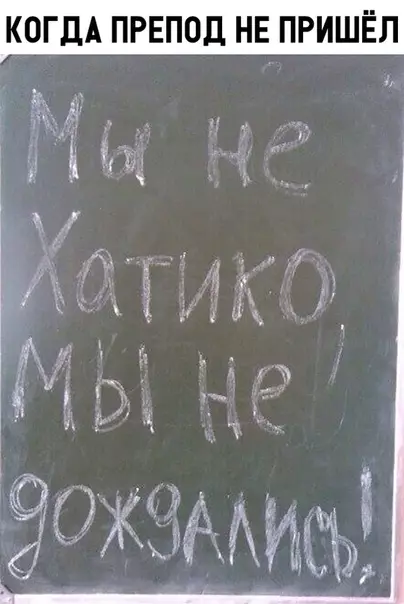 КОГДА ПРЕПОД НЕ ПРИШЁЛ
Мы не
Хатико,
мы не
дождались!